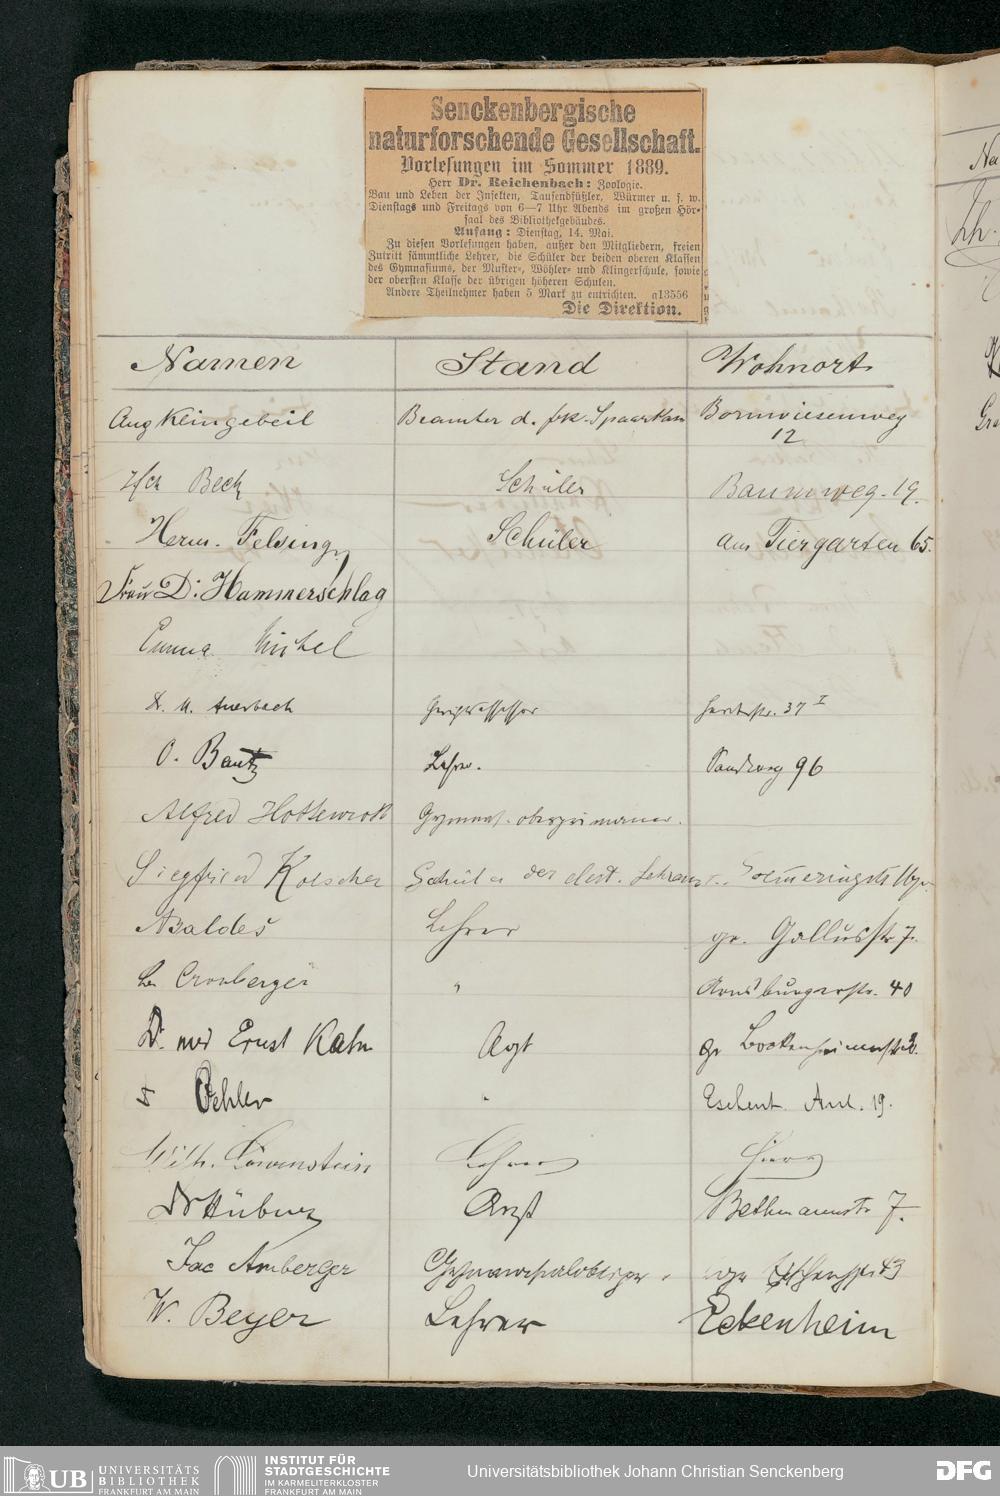 Senckenbergische
naturforschende Gesellschaft.
Vorlesungen im Sommer 1889.
Herr Dr. Reichenbach: Zoologie.
Bau und Leben der Insekten, Tausendfüßler, Würmer u. s. w.
Dienstags und Freitags von 6—7 Uhr Abends im großen Hör-
saal des Bibliothekgebäudes.
Anfang: Dienstag, 14. Mai.
Zu diesen Vorlesungen haben, außer den Mitgliedern, freien
Zutritt sämmtliche Lehrer, die Schüler der beiden oberen Klassen
des Gymnasiums, der Muster-, Wöhler- und Klingerschule, sowie
der obersten Klasse der übrigen höheren Schulen.
Andere Theilnehmer haben 5 Mark zu entrichten. a13556
Die Direktion.
Namen Stand Wohnort
Aug Klingebeil Beamter d. frk. Spaarkass Bornwiesenweg
12
Hch Beck Schüler Baumweg. 19.
Herm. Felsing Schüler am Tiergarten 65.
Frau Dr. Hammerschlag
Emma Michel
Auerbach 37 I
O. Bautz Lehrer. Sandweg 96
Alfred Hottenrott Gymnas. oberprimaner.
Siegfried Kolscher Schüler der
Baldes Lehrer gr. Gallusstr 7.
Cronberger " Arnsburgerstr. 40
Dr. med Ernst Kahn Arzt gr Bockenheimerstr
Oehler " Eschenh. Anl. 19.
Wilh. Löwenstein Lehrer Hier
Dr Hübner Arzt Bethmannstr 7.
Jac Amberger 43
W. Beyer Lehrer Eckenheim
UB UNIVERSITÄTS
BIBLIOTHEK
FRANKFURT AM MAIN
INSTITUT FÜR
STADTGESCHICHTE
IM KARMELITERKLOSTER
FRANKFURT AM MAIN
Universitätsbibliothek Johann Christian Senckenberg
DFG